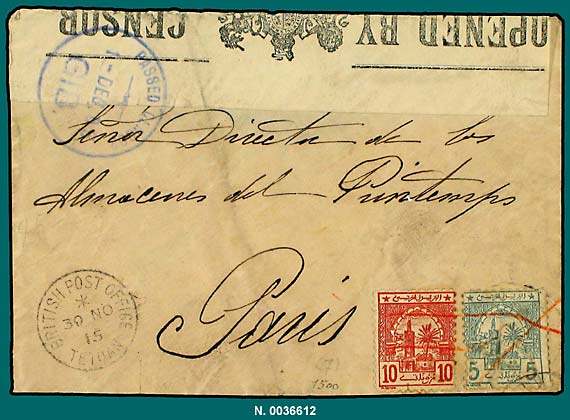 OPENED BY CENSOR
PASSED
1-DEC
GIB
Señor Director de los
Almacenes del Printemps
Paris
BRITISH POST OFFICE
*
30 NO
15
TETUAN
10 10
5 5
1500
N. 0036612